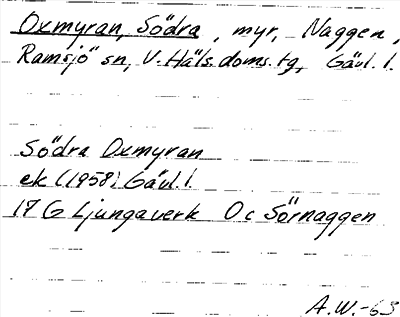 Oxmyran, Södra, myr, Naggen,
Ramsjö sn, V. Häls. doms. tg, Gävl. l.
Södra Oxmyran
ek (1958) Gävl. l.
17 G Ljungaverk Oc Sörnaggen
A.W.-63